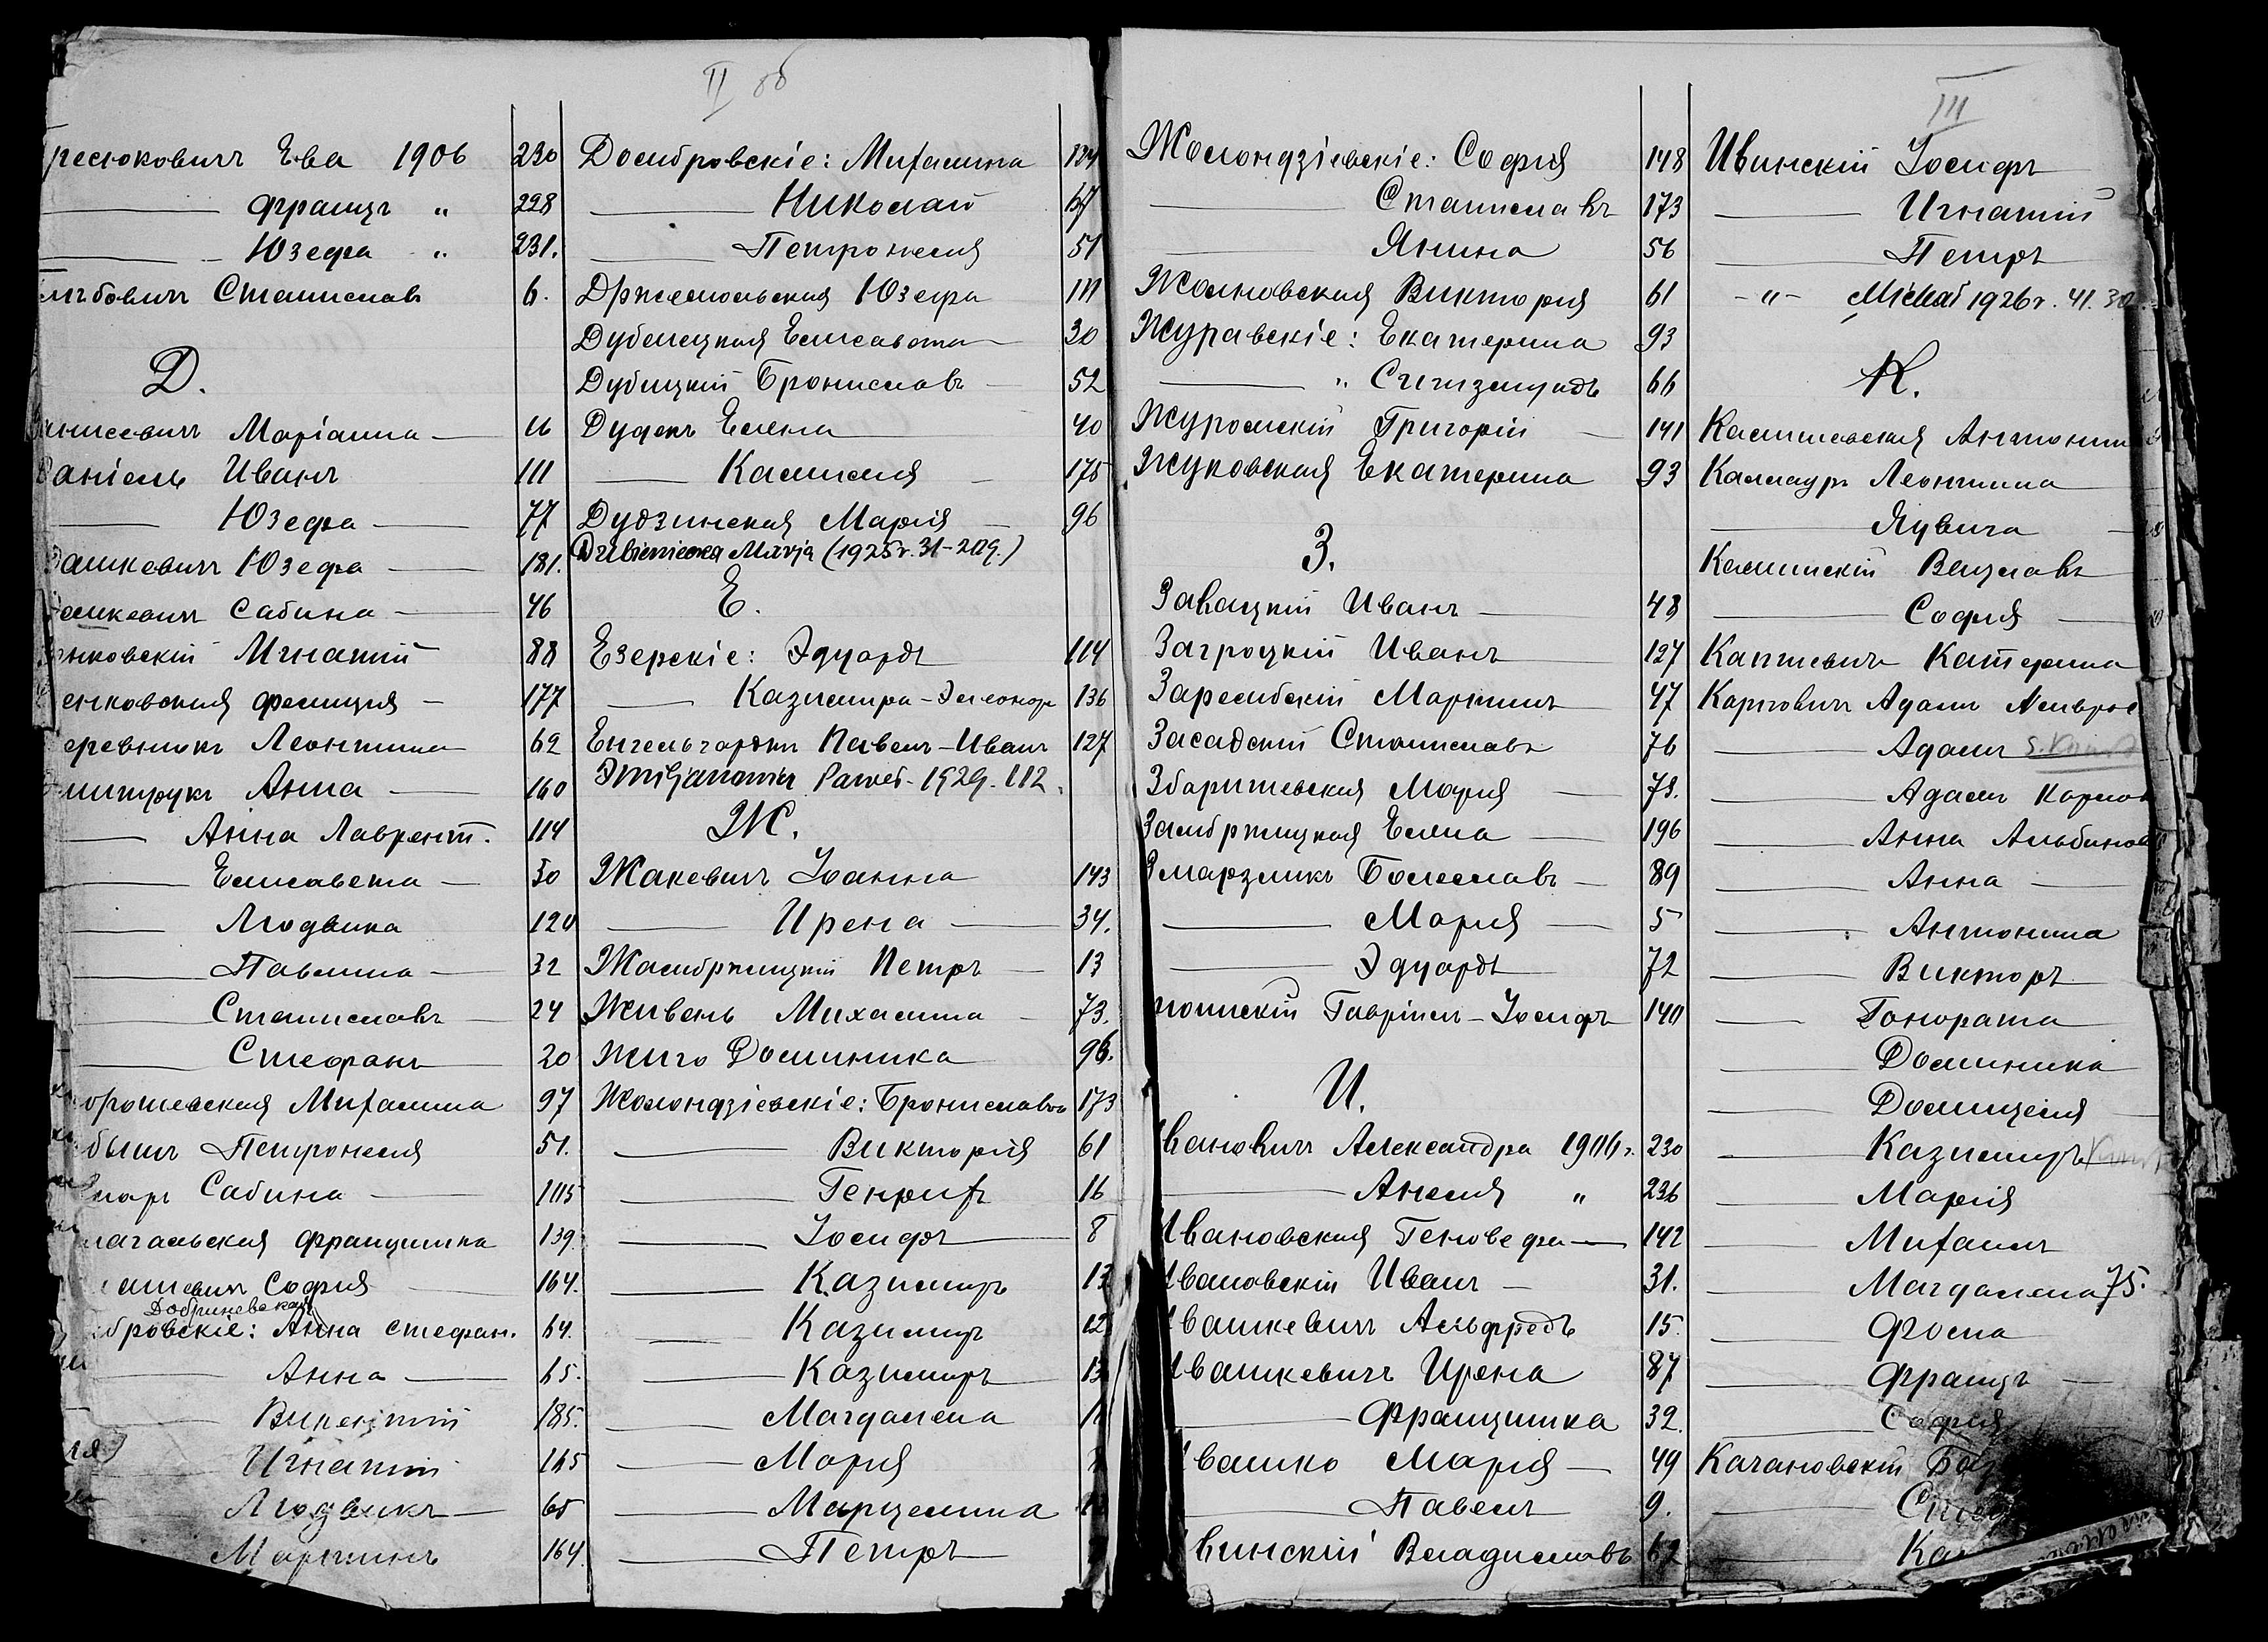 II об
ресюковичъ Ева 1906 230
Францъ " 228
Юзефа " 231.
Станиславъ 6.
Д.
Маріанна 16
Даніель Иванъ 111
Юзефа 77
Дашкевичъ Юзефа 181.
Сабина 46
нковскій Игнатій 88
енковская Фелиція 177
еревникъ Леонтина 62
митрукъ Анна 160
Анна Лаврент. 114
Елисавета 30
Людвика 120
Павлина 32
Станиславъ 24
Стефанъ 20
орошевская Михалина 97
Петронеля 51.
Сабина 105
Францишка 139.
София 164.
Добриневская
бровскіе: Анна Стефан. 64.
Анна 65.
Викентій 185.
Игнатій 165
Людвикъ 65
Мартинъ 164.
Домбровскіе: Михалина 124
Николай 67
Петронеля 51
Држемольская Юзефа 111
Дубелецкая Елисавета 30
Дубицкій Брониславъ 52
Дудекъ Елена 40
Камиля 175
Дудзинская Мария 96
Marja (1925 r. 31-209.)
Е.
Езерскіе: Эдуардъ 114
Казимира-Элеонор 136
Енгельгардтъ Павелъ-Иванъ 127
Emiljanowicz Paweł - 1929. 112.
Ж.
Жакевичъ Іоанна 143
Ирена 34.
Жамбржицкій Петръ 13
Живень Михалина 73.
Жиго Доминика 96.
Жолондзіевскіе: Брониславъ 173
Виктория 61
Генрихъ 16
Іосифъ 8
Казимиръ 13
Казимиръ 12
Казимиръ 13
Магдалена
Мария
Марцелина
Петръ
III
Жолондзіевскіе: София 148
Станиславъ 173
Янина 56
Жолновская Виктория 61
Журавскіе: Екатерина 93
" Сигизмундъ 66
Журомскій Григорій 141
Жуковская Екатерина 93
З.
Завацкій Иванъ 48
Загроцкій Иванъ 127
Зарембскій Мартинъ 47
Засадскій Станиславъ 76
Збаришевская Мария 73.
Замбржицкая Елена 196
Змарзликъ Болеславъ 89
Мария 5
Эдуардъ 72
Гавріилъ-Іосифъ 140
И.
вановичъ Александра 1906 г. 230
Анеля " 236
Ивановская Геновефа 142
Ивановскій Иванъ 31.
Ивашкевичъ Альфредъ 15.
Ивашкевичъ Ирена 87
Францишка 32.
Ивашко Мария 49
Павелъ 9.
Ивинскій Владиславъ 62
Ивинскій Іосифъ
Игнатій
Петръ
-"- Michał 1926 r. 41.
К.
Антонин
Калмауръ Леонтина
Ядвига
Каминскій Вацлавъ
София
Каптевичъ Катерина
Карповичъ Адамъ
Адамъ
Адамъ
Анна Альбинов
Анна
Антонина
Викторъ
Гонората
Доминика
Домицеля
Казимиръ
Мария
Михаилъ
Магдалена 75.
Фома
Францъ
София
Качановскій